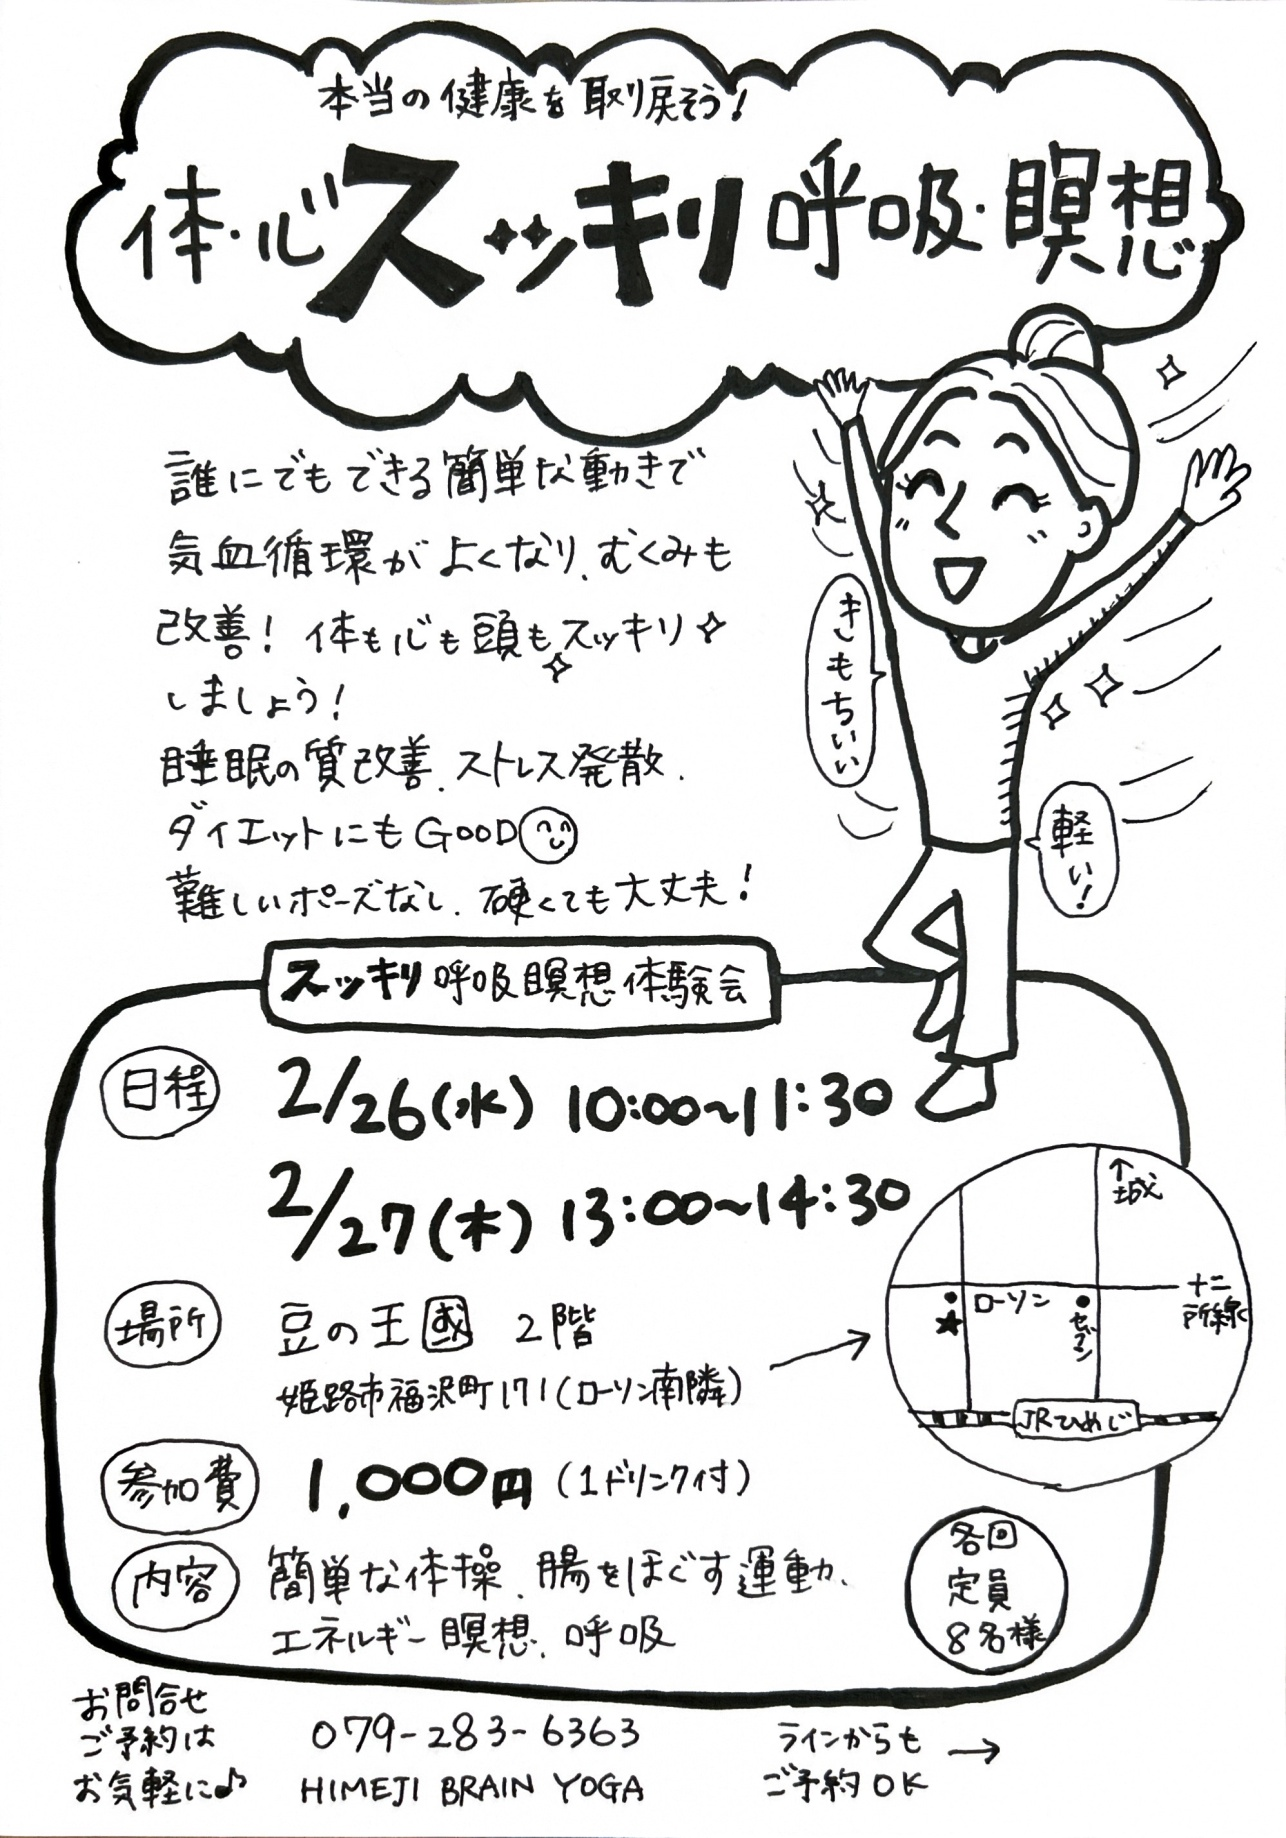 本当の健康を取り戻そう!
体・心スッキリ呼吸・瞑想
誰にでもできる簡単な動きで
気血循環がよくなり、むくみも
改善!体も心も頭もスッキリ
しましょう!
睡眠の質改善、ストレス発散、
ダイエットにもGOOD
難しいポーズなし、硬くても大丈夫!
きもちいい
軽い!
スッキリ呼吸瞑想体験会
日程
2/26(水) 10:00~11:30
2/27(木) 13:00~14:30
場所
豆の王国 2階
姫路市福沢町171(ローソン南隣)
↑城
十二所線
ローソン
セブン
★
JRひめじ
参加費
1,000円(1ドリンク付)
内容
簡単な体操、腸をほぐす運動、
エネルギー瞑想、呼吸
各回
定員
8名様
お問合せ
ご予約は
お気軽に♪
079-283-6363
HIMEJI BRAIN YOGA
ラインからも
ご予約OK
→